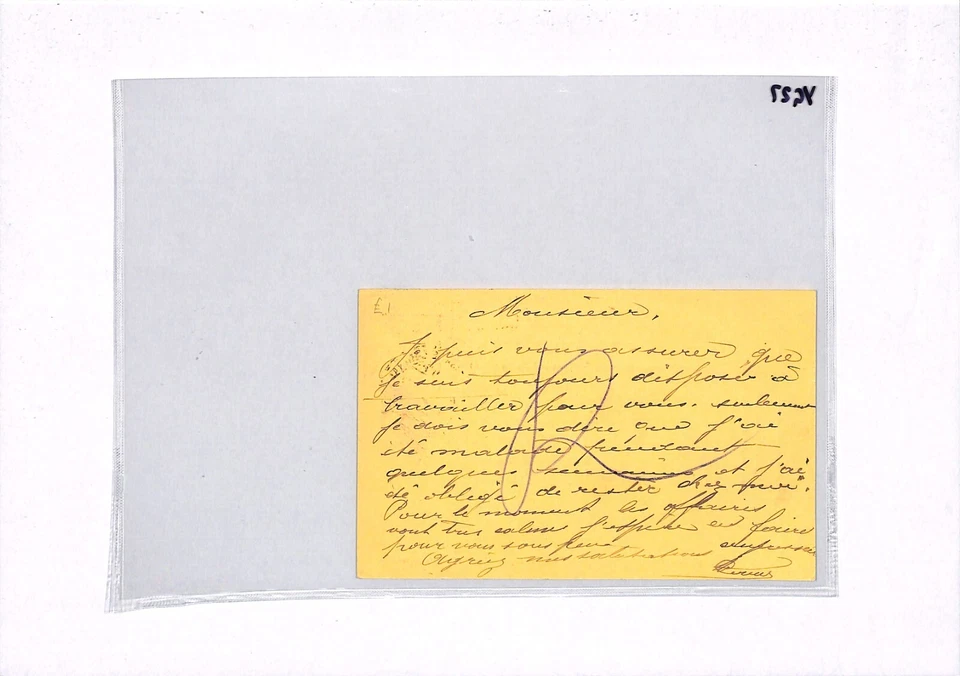 £1
Monsieur,
Je puis vous assurer que
je suis toujours disposé à
travailler pour vous. seulement
je dois vous dire que j'ai
été malade pendant
quelques semaines et j'ai
été obligé de rester chez moi.
Pour le moment les affaires
vont très calmes j'espère en faire
pour vous sous peu
Agréez mes salutations empressées